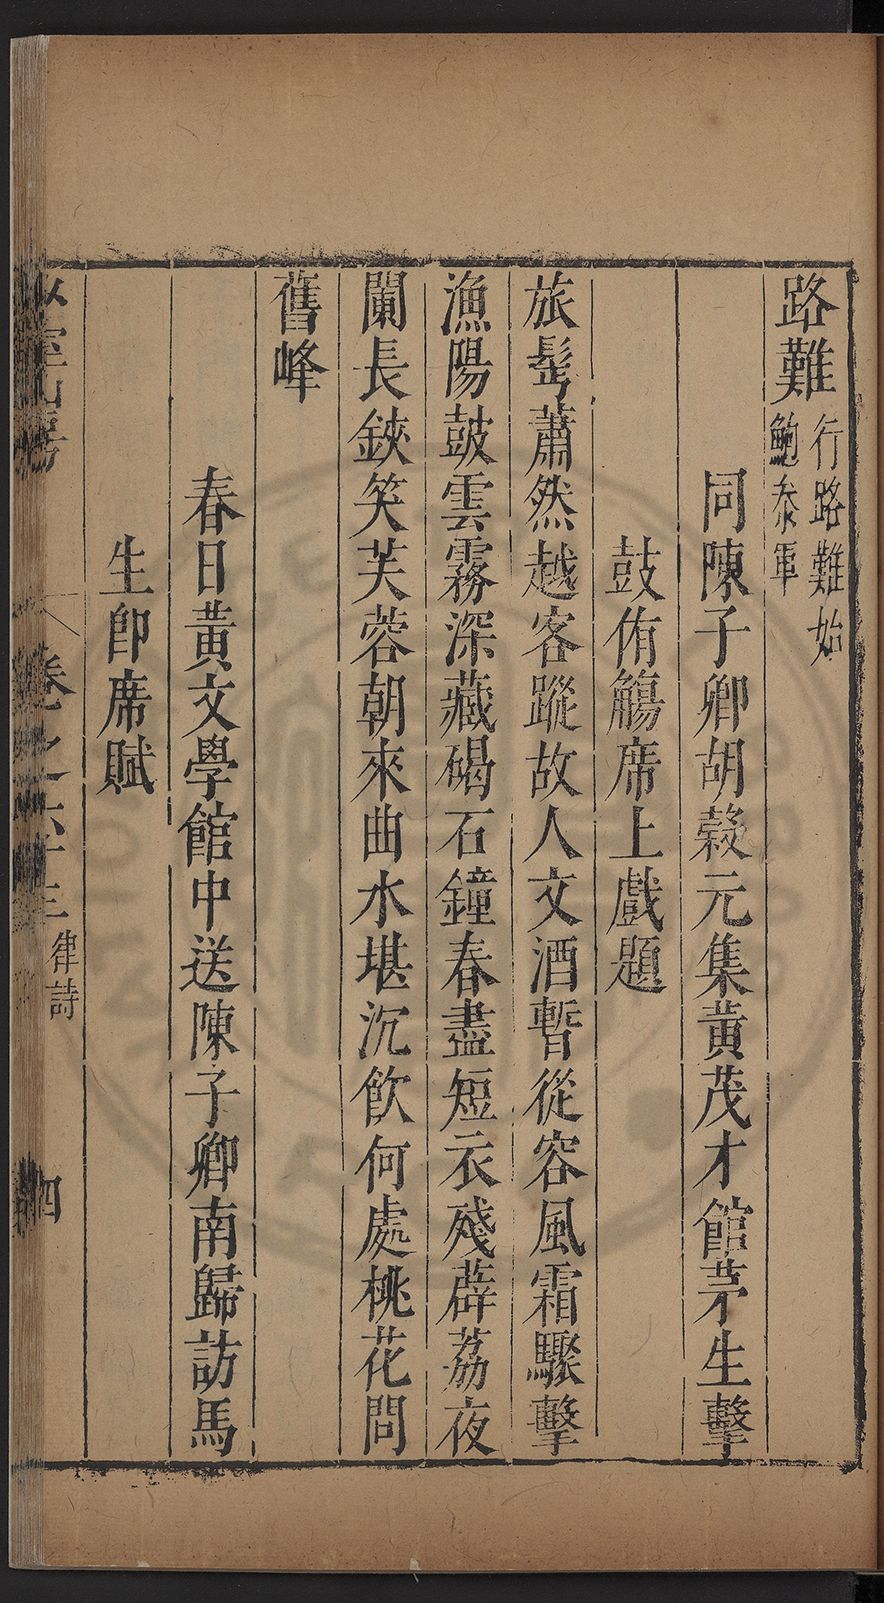 路難行路難始鮑叅軍
同陳子卿胡榖元集黃茂才館茅生擊
鼓侑觴席上戲題
旅髩蕭然越客蹤故人文酒暫從容風霜驟擊
漁陽鼓雲霧深藏碣石鐘春盡短衣殘薜荔夜
闌長鋏笑芙蓉朝來曲水堪沉飲何處桃花問
舊峰
春日黃文學館中送陳子卿南歸訪馬
生卽席賦
室山房
卷之六十三
律詩
四